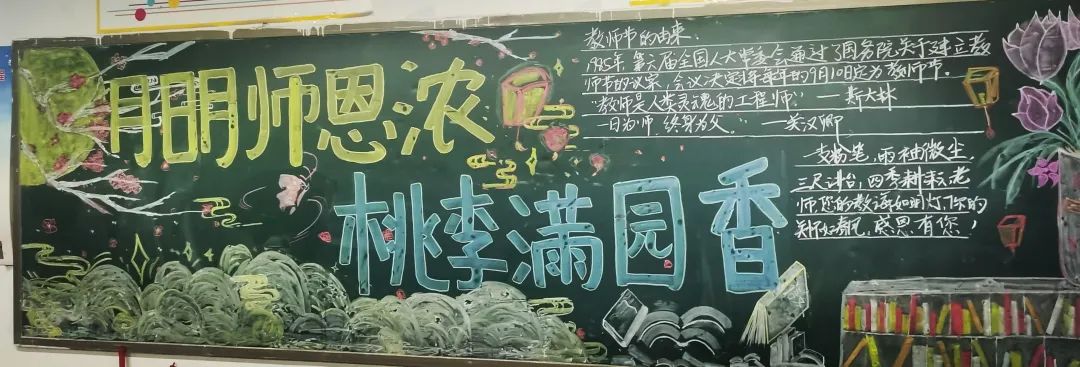 月明师恩浓
桃李满园香
教师节的由来
1985年第六届全国人大常委会通过了国务院关于建立教
师节的议案,会议决定将每年的9月10日定为教师节。
"教师是人类灵魂的工程师" —斯大林
一日为师,终身为父。" —关汉卿
一支粉笔,两袖微尘,
三尺讲台,四季耕耘,老
师您的教诲如明灯,您的
师,感恩有您!